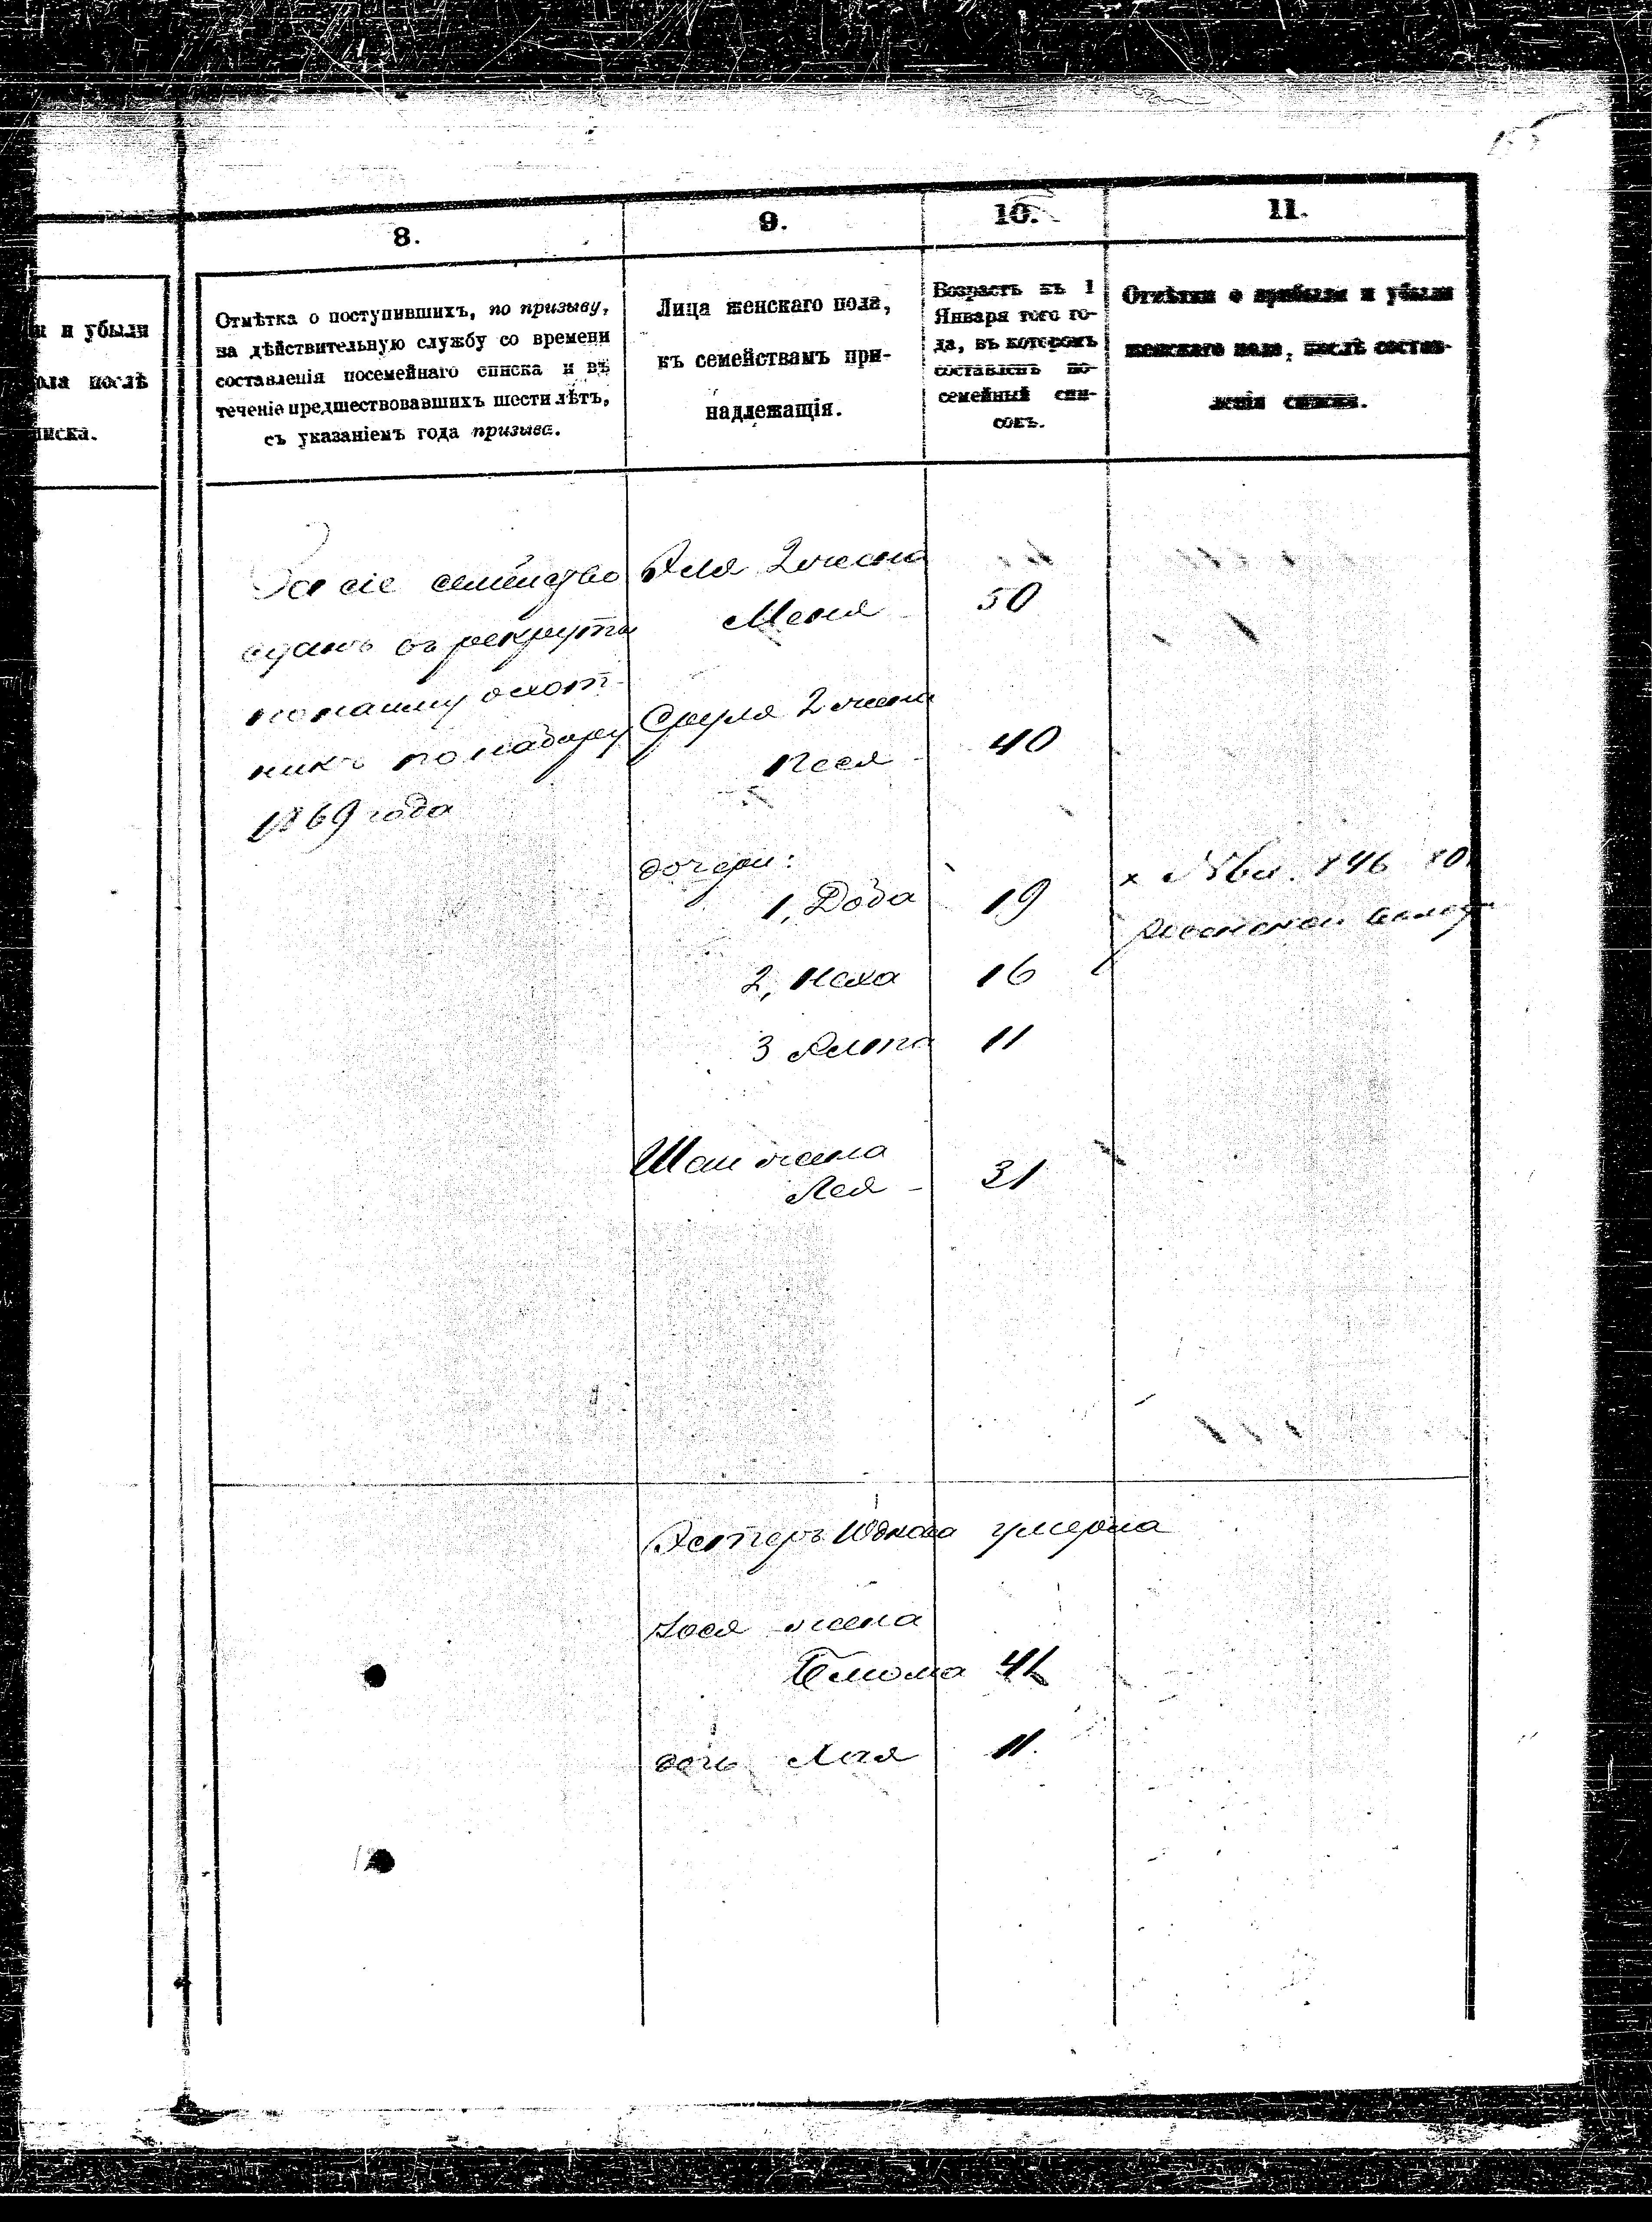 8.
9.
10.
11.
и убыли
ола послѣ
писка.
Отмѣтка о поступившихъ, по призыву,
на дѣйствительную службу со времени
составленія посемейнаго списка и въ
теченіе предшествовавшихъ шести лѣтъ,
съ указаніемъ года призыва.
Лица женскаго пола,
къ семействамъ при-
надлежащія.
Возрастъ къ 1
Января того го-
да, въ которомъ
составленъ по-
семейный спи-
сокъ.
Отмѣтки о прибыли и убыли
женскаго пола, послѣ состав-
ленія списка.
За сіе семейство
сданъ въ рекруты
охот-
никъ по набору
1869 года
2 жена
Меня 50
Сруля 2 жена
Песя 40
дочери:
1, Добa 19
2, Неха 16
3 11
Шаи жена
Лея 31
Эстеръ умерла
жена
Блюма 41
дочь Хая 11